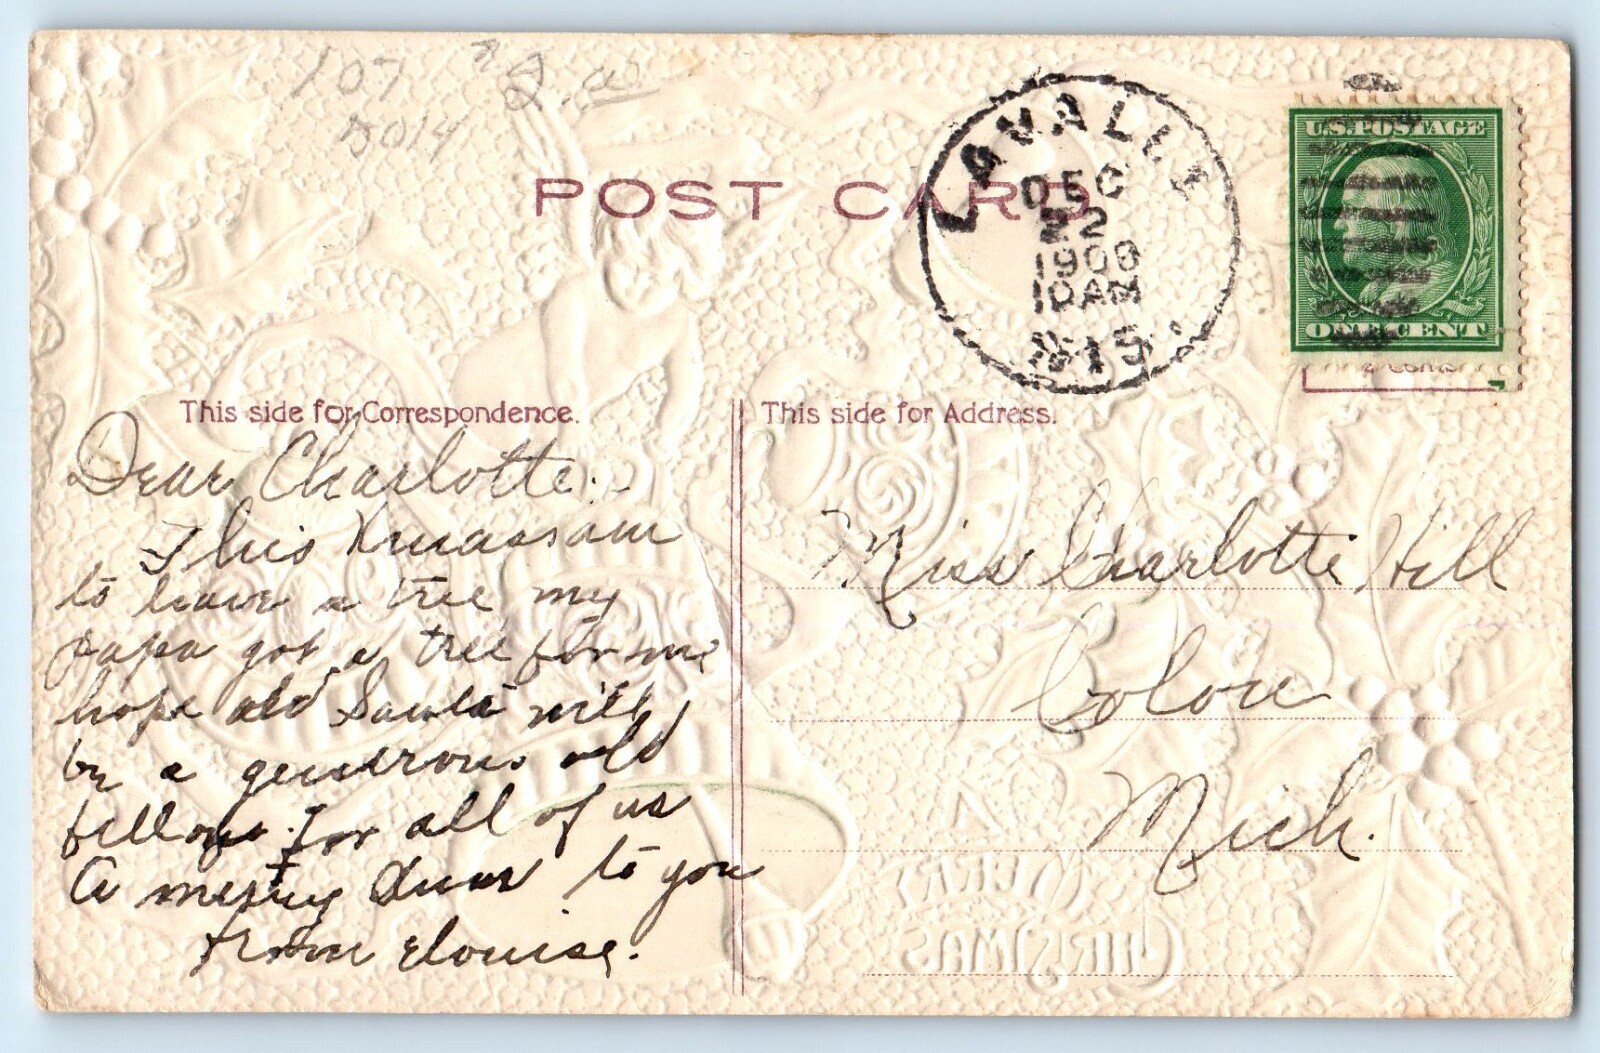 107
5014
2.00
POST CARD
LAVALLE
DEC
22
1908
10AM
WIS.
U.S. POSTAGE
ONE CENT
This side for Correspondence.
This side for Address.
Dear Charlotte:-
This Xmas am
to have a tree my
papa got a tree for me
hope old Santa will
be a generous old
fellow for all of us
A merry Xmas to you
from Elouise.
Miss Charlotte Hill
Colon
Mich.
MERRY
CHRISTMAS